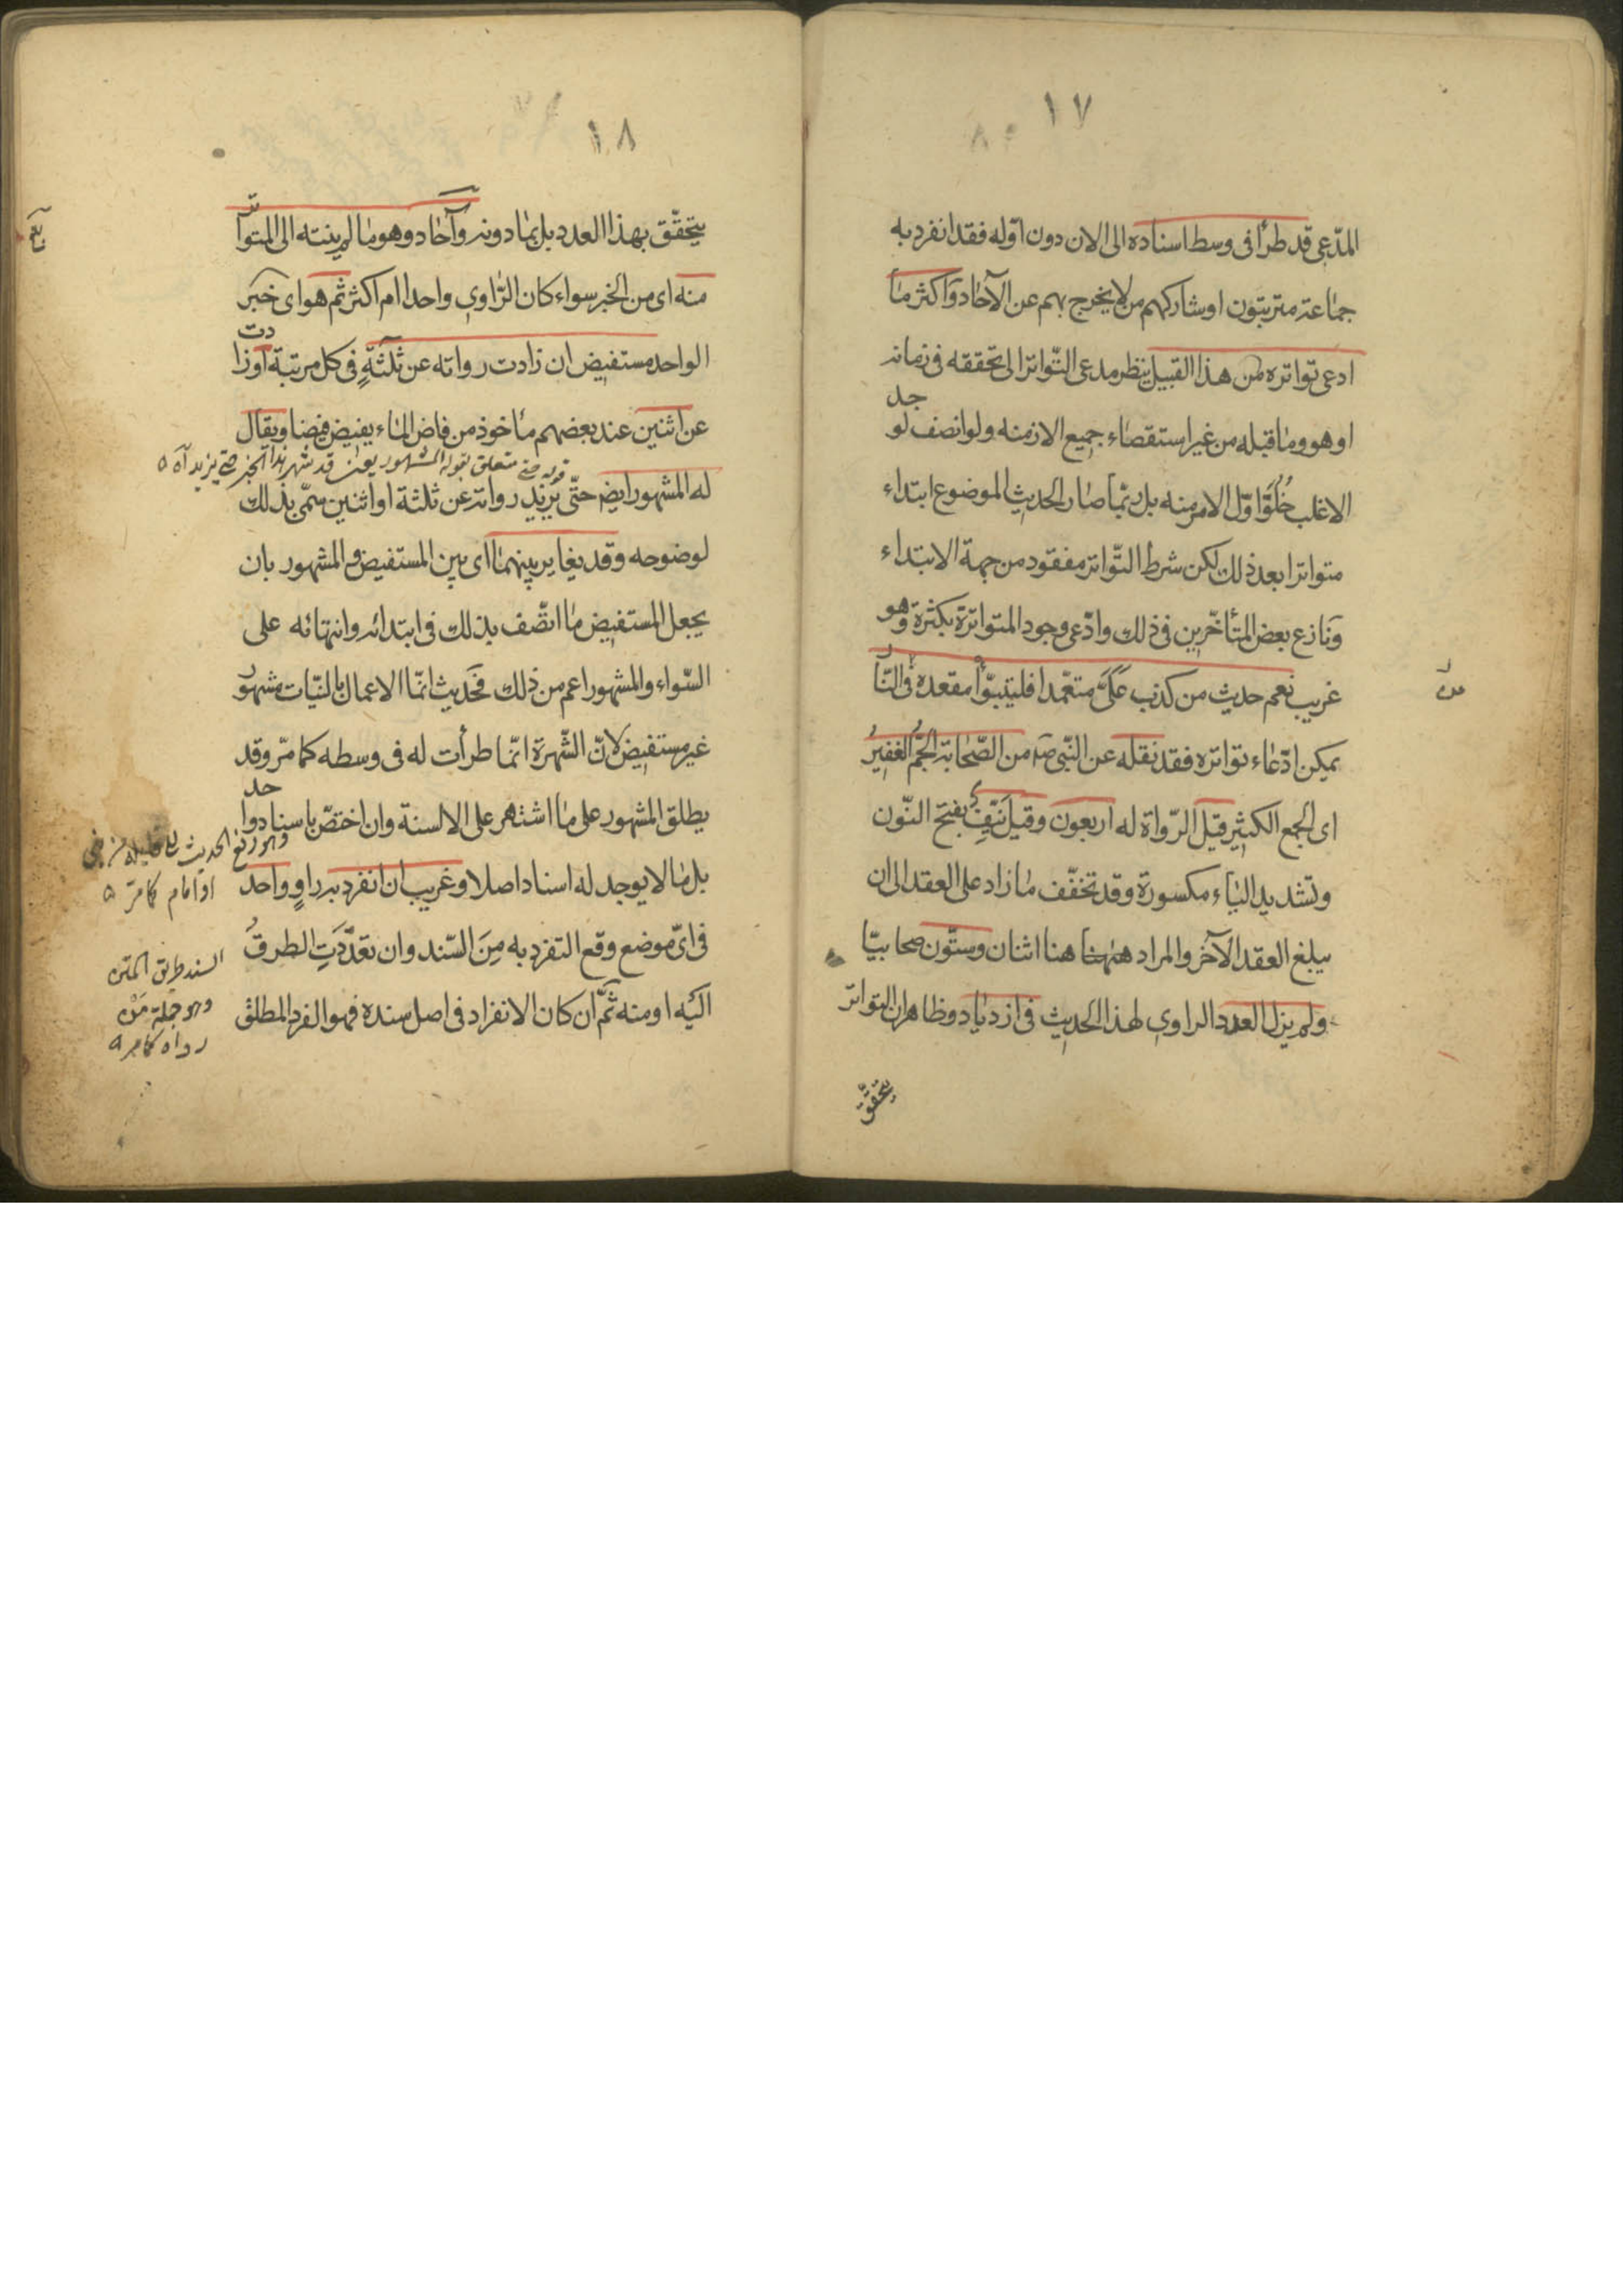 ١٧
المدّعى قد طرأ فى وسط اسناده الى الان دون اوّله فقد انفرد به
جماعة مترتبون او شاركهم من لا يخرج بهم عن الآحاد واكثر ما
ادعى تواتره من هذا القبيل ينظر مدعى التّواتر الى تحققه فى زمانه
او هو وما قبله من غير استقصاء جميع الازمنه ولو انصف لوجد
الاغلب خُلُوَّ اوّل الامر منه بل ربّما صار الحديث الموضوع ابتداء
متواترا بعد ذلك لكن شرط التّواتر مفقود من جهة الابتداء
وَنازع بعض المتأخّرين فى ذلك وادّعى وجود المتواترة بكثرة وهو
غريب نعم حديث من كذب عَلَىَّ متعّمدا فليتبوّأ مقعده فى النّار
يمكن ادّعاء تواتره فقد نقله عن النّبى صه من الصّحابة الجَمُّ الغفيرُ
اى الجمع الكثير قيل الرّواة له اربعون وقيل نَيِّفٌ بفتح النّون
وتشديد الياء مكسورة وقد تخفّف ما زاد على العقد الى ان
يبلغ العقد الآخر والمراد ههنا هنا اثنان وستّون صحابيّا
ولم يزل العدد الراوى لهذا الحديث فى ازدياد وظاهر ان التواتر
يتحقّق
١٨
يتحقّق بهذا العدد بل بما دونه وآحاد وهو ما لم ينته الى المتواتر
منه اى من الخبر سواء كان الرّاوى واحدا ام اكثر ثم هو اى خبر
الواحد مستفيض ان زادت رواته عن ثلثةٍ فى كل مرتبة او زادت
عن اثنين عند بعضهم مأخوذ من فاض الماء يفيض فيضا ويقال
قوله حتى متعلق بقوله المشهور يعنى قد شهر هذا الخبر حتى يزيد آه
له المشهور ايضا حتّى يزيد رواته عن ثلثة او اثنين سمّى بذلك
لوضوحه وقد يغاير بينهما اى بين المستفيض والمشهور بان
يجعل المستفيض ما اتّصف بذلك فى ابتدائه وانتهائه على
السّواء والمشهور اعم من ذلك فحديث انمّا الاعمال بالنيّات مشهور
غير مستفيض لانّ الشّهرة انمّا طرأت له فى وسطه كما مرّ وقد
يطلق المشهور على ما اشتهر على الالسنة وان اختصّ باسناد واحد
بل ما لا يوجد له اسناد اصلا وغريب ان انفرد به راوٍ واحد
فى اىّ موضع وقع التفرد به مِنَ السّند وان تعدَّدَتِ الطرقُ
اليه او منه ثمَّ ان كان الانفراد فى اصل سنده فهو الفرد المطلق
وهو رفع الحديث الى قائله من نبى
او امام كما مرّ
السند طريق المتن
وهو جملة مَنْ
رواه كما مر